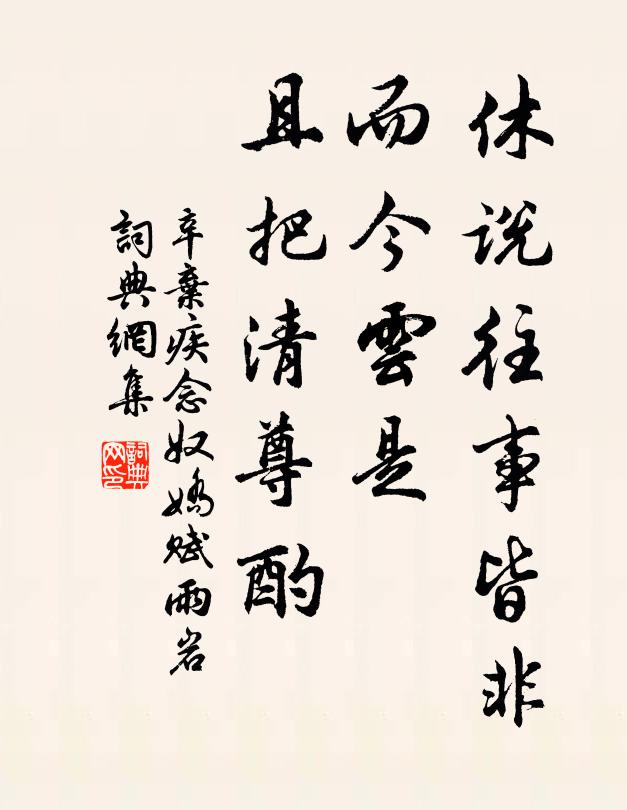 休説往事皆非
而今雲是
且把清尊酌
辛棄疾念奴嬌賦雨岩
詞典網集
詞典网印